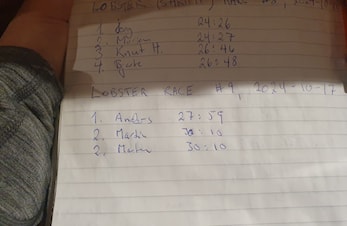 LOBSTER
1. 24:26
2. 24:27
3. Knut H 26:46
4. 26:48
LOBSTER RACE #9, 2024-10-17
1. Anders 27:59
2. Martin 30:10
2. 30:10